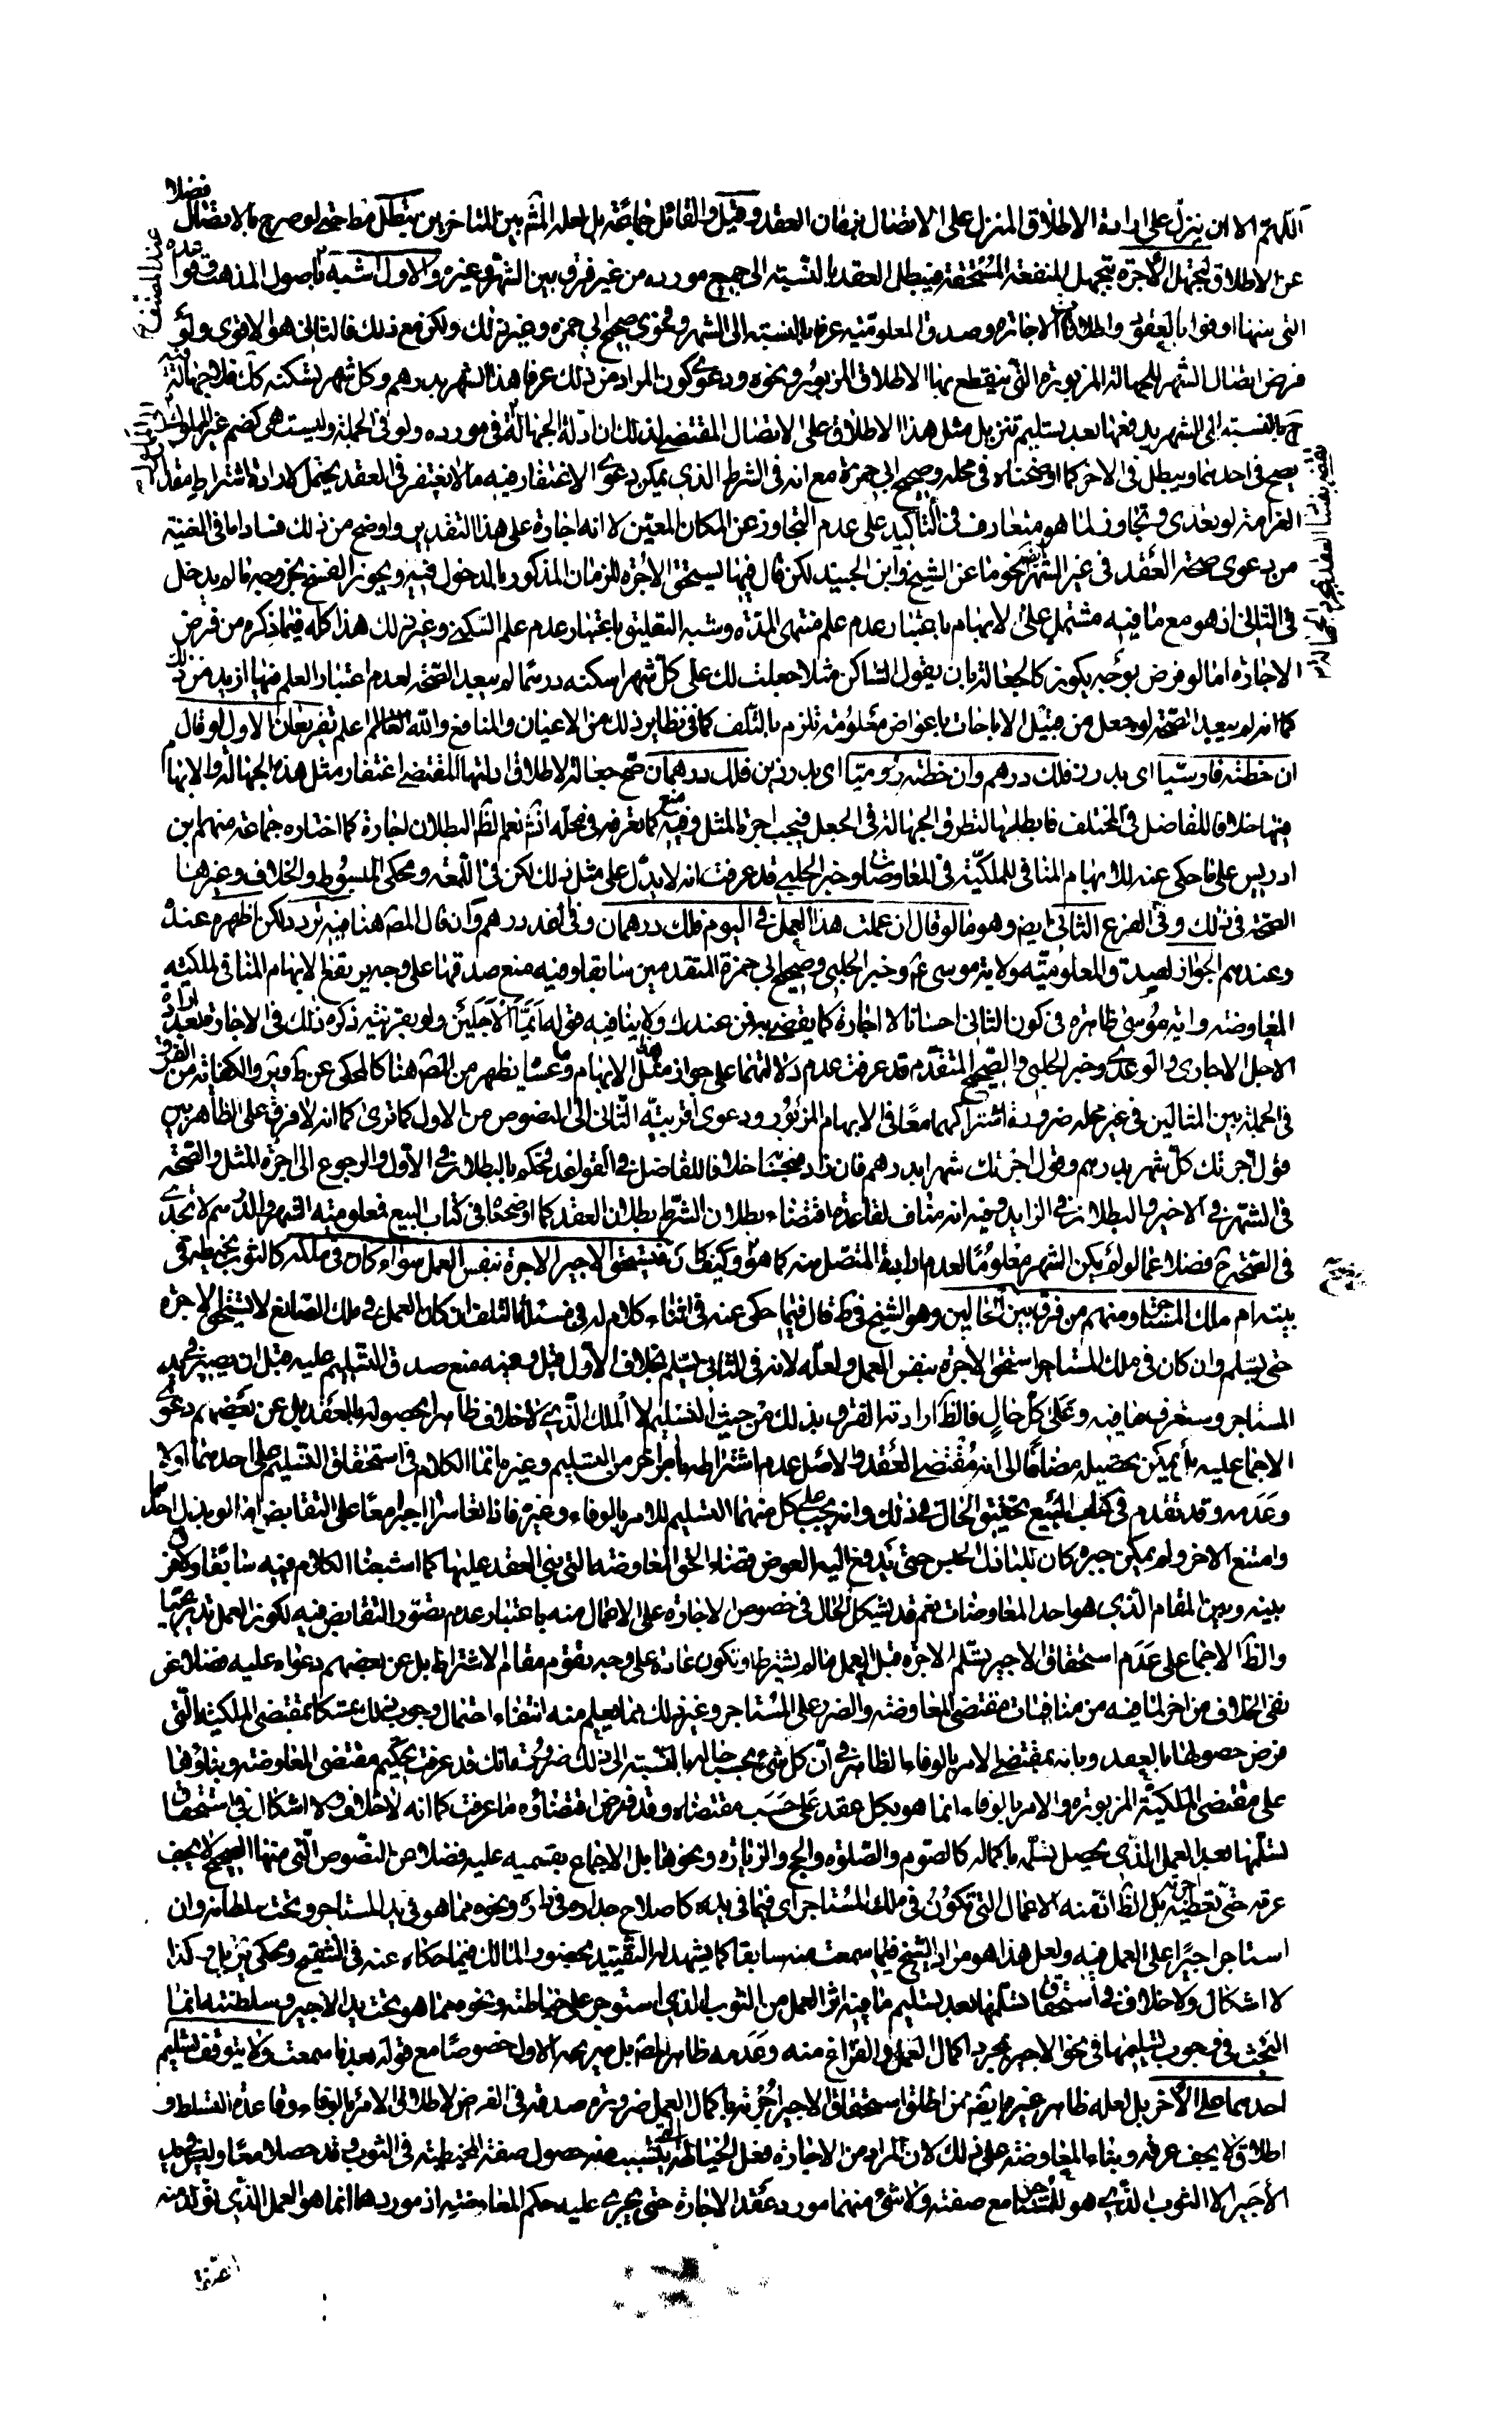 اللهم الا ان ينزل على ارادة الاطلاق المنزل على الاتصال بزمان العقد وقيل والقائل جماعة بل لعله المش بين المتاخرين يبطل مط حتى لو صرح بالاتصال فضلا
عن الاطلاق لتجهل الاجرة بتجهل المنفعة المستحقة فيبطل العقد بالنسبة الى جميع مورده من غير فرق بين الشهر وغيره والاول اشبه باصول المذهب وقواعده عند المصنف
التي منها اوفوا بالعقود واطلاق الاجارة وصدق المعلومية عرفا بالنسبة الى الشهر وفحوى صحيح ابي حمزه وغير ذلك ولكن مع ذلك فالثاني هو الاقوى ولو
فرض اتصال الشهر للجهالة المزبورة التي ينقطع بها الاطلاق المزبور ونحوه ودعوى كون المراد من ذلك عرفا هذا الشهر بدرهم وكل شهر تسكنه كك فلا جهالة فيه
ح بالنسبة الى الشهر يدفعها بعد تسليم تنزيل مثل هذا الاطلاق على الاتصال المقتضي لذلك ان ادلة الجهالة في مورده ولو في الجملة وليست هي كضم غير المملوك
يصح في احدهما ويبطل في الاخر كما اوضحناه في محله وصحيح ابي حمزة مع انه في الشرط الذي يمكن دعوى الاغتفار فيه ما لا يغتفر في العقد يحتمل لارادة اشتراط مقدار
الغرامة لو تعدى وتجاوز لما هو متعارف في التاكيد على عدم التجاوز عن المكان المعين لا انه اجارة على هذا التقدير واوضح من ذلك فسادا ما في الغنية
من دعوى صحة العقد في غير الشهر نحو ما عن الشيخ وابن الجنيد لكن قال فيها يستحق الاجرة للزمان المذكور بالدخول فيه ويجوز الفسخ بخروجه ما لم يدخل
في الثاني اذ هو مع ما فيه مشتمل على الابهام باعتبار عدم علم منتهى المدة وشبه التعليق باعتبار عدم علم السكنى وغير ذلك هذا كله فيما ذكره من فرض
الاجارة اما لو فرض بوجه يكون كالجعالة بان يقول الساكن مثلا جعلت لك على كل شهر اسكنه درهما لم يبعد الصحة لعدم اعتبار العلم فيها ازيد من ذلك
كما انه لم يبعد الصحة لو جعل من قبيل الاباحات باعواض معلومة تلزم بالتلف كما في نظاير ذلك من الاعيان والمنافع والله العالم اعلم تفريعان الاول لو قال
ان خطته فارسيا اى بدرز فلك درهم وان خطته روميا اى بدرزين فلك درهمان صح جعالة لاطلاق ادلتها المقتضي اغتفار مثل هذه الجهالة والابهام
فيها خلافا للفاضل في المختلف فابطلها لتطرق الجهالة في الجعل فيجب اجرة المثل وفيه منع كما تعرفه في محله انش نعم الظ البطلان اجارة كما اختاره جماعة منهم ابن
ادريس على ما حكى عنه للابهام المنافي للملكية في المعاوضات وخبر الحلبي قد عرفت انه لا يدل على مثل ذلك لكن في اللمعة ومحكي المبسوط والخلاف وغيرهما
الصحة في ذلك وفي الفرع الثاني ايض وهو ما لو قال ان عملت هذا العمل في اليوم فلك درهمان وفي الغد درهم وان قال المص هنا فيه تردد لكن اظهره عنده
وعندهم الجواز لصدق المعلومية ولاية موسى ع وخبر الحلبي وصحيح ابي حمزة المتقدمين سابقا وفيه منع صدقها على وجه يرتفع الابهام المنافي لملكية
المعاوضة واية موسى ظاهرة في كون الثاني احسانا لا اجارة كما يقضى به فمن عندك ولا ينافيه قوله ايما الاجلين ولو بقرينة ذكره ذلك في الاجارة بعد ارادة
الاجل الاجاري والوعدي وخبر الحلبي والصحيح المتقدم قد عرفت عدم دلالتهما على جواز مثل هذا الابهام وما عساه يظهر من المص هنا كالمحكي عن ط وير والكفاية من الفرق
في الجملة بين المثالين في غير محله ضرورة اشتراكهما معا في الابهام المزبور ودعوى اقربية الثاني الى النصوص من الاول كما ترى كما انه لا فرق على الظاهر بين
قول آجرتك كل شهر بدرهم وقول اجرتك شهرا بدرهم فان زاد فبحسابه خلافا للفاضل في القواعد فحكم بالبطلان في الاول والرجوع الى اجرة المثل والصحة
في الشهر في الاخير والبطلان في الزايد وفيه انه مناف لقاعدة اقتضاء بطلان الشرط بطلان العقد كما اوضحناه في كتاب البيع فمعلومية الشهر والدرهم لا تجدى
في الصحة ح فضلا عما لو لم يكن الشهر معلوما لعدم ارادة المتصل منه كما هو وكيف كان فيستحق الاجير الاجرة بنفس العمل سواء كان في ملكه كالثوب يخيطه في
بيته ام ملك المستاجر ومنهم من فرق بين الحالين وهو الشيخ في ط قال فيما حكى عنه في اثناء كلام له في مسئلة التلف ان كان العمل في ملك الصانع لا يستحق الاجرة
حتى يسلم وان كان في ملك المستاجر استحق الاجرة بنفس العمل ولعله لانه في الثاني يسلم بخلاف الاول قيل وفيه منع صدق التسليم عليه قبل ان يصير في يد
المستاجر وستعرف ما فيه وعلى كل حال فالظ ارادته الفرق بذلك من حيث التسليم لا الملك الذي لا خلاف ظاهرا بحصوله بالعقد بل عن بعضهم دعوى
الاجماع عليه بل يمكن تحصيله مضافا الى انه مقتضى العقد والاصل عدم اشتراطه بامر اخر من التسليم وغيره انما الكلام في استحقاق التسليم على احدهما اولا
وعدمه وقد تقدم في كتاب البيع تحقيق الحال في ذلك وانه يجب على كل منهما التسليم للامر بالوفاء وغيره فاذا تعاسرا اجبرا معا على التقابض اما لو بذل احدهما
وامتنع الاخر ولم يمكن جبره كان للباذل الحبس حتى يدفع اليه العوض قضاء لحق المعاوضة التي بني العقد عليها كما اشبعنا الكلام فيه سابقا ولا فرق
بينه وبين المقام الذي هو احد المعاوضات نعم قد يشكل الحال في خصوص الاجارة على الاعمال منه باعتبار عدم تصور التقابض فيه لكون العمل تدريجيا
والظ الاجماع على عدم استحقاق الاجير تسلم الاجرة قبل العمل ما لم يشترط او تكون عادة على وجه يقوم مقام الاشتراط بل عن بعضهم دعواه عليه فضلا عن
نفي الخلاف من اخر لما فيه من منافيات مقتضى المعاوضة والضرر على المستاجر وغير ذلك مما يعلم منه انتفاء احتمال وجوب ذلك تمسكا بمقتضى الملكية التي
فرض حصولها بالعقد وبانه مقتضى الامر بالوفاء الظاهر في ان كل شئ بحسب حاله بالنسبة الى ذلك ضرورة انك قد عرفت تحكيم مقتضى المعاوضة وبناؤها
على مقتضى الملكية المزبورة والامر بالوفاء انما هو بكل عقد على حسب مقتضاه وقد فرض اقتضاؤه ما عرفت كما انه لا خلاف ولا اشكال في استحقاق
تسلمها بعد العمل الذي يحصل تسلمه باكماله كالصوم والصلوة والحج والزيارة ونحوها بل الاجماع بقسميه عليه فضلا عن النصوص التي منها الصحيح لا يجف
عرقه حتى تعطيه اجرته بل الظ ان منه الاعمال التي تكون في ملك المستاجر اى فيما في يده كاصلاح جدار في داره ونحوه مما هو في يد المستاجر وتحت سلطانه وان
استاجر اجيرا على العمل فيه ولعل هذا هو مراد الشيخ فيما سمعت منه سابقا كما يشهد له التقييد بحضور المالك فيما حكاه عنه في التنقيح ومحكي يزيل كذا
لا اشكال ولا خلاف في استحقاق تسلمها بعد تسليم ما فيه اثر العمل من الثوب الذي استوجر على خياطته ونحوه مما هو تحت يد الاجير وسلطنته انما
البحث في وجوب تسليمها في نحو الاجير بمجرد اكمال العمل والفراغ منه وعدمه ظاهر المص بل صريحه الاول خصوصا مع قوله بعد ما سمعت ولا يتوقف تسليم
احدهما على الاخر بل لعله ظاهر غيره ايض ممن اطلق استحقاق الاجير اجرته باكمال العمل ضرورة صدقه في الفرض لاطلاق الامر بالوفاء وقاعدة التسلط و
اطلاق لا يجف عرقه وبناء المعاوضة على ذلك لان المراد من الاجارة فعل الخياطة التي يتسبب منه حصول صفة المخيطية في الثوب وقد حصلا معا وليس في يد
الاجير الا الثوب الذي هو للمستاجر مع صفته ولا شئ منهما مورد عقد الاجارة حتى يجرى عليه حكم المعاوضة اذ موردها انما هو العمل الذي تولد منه